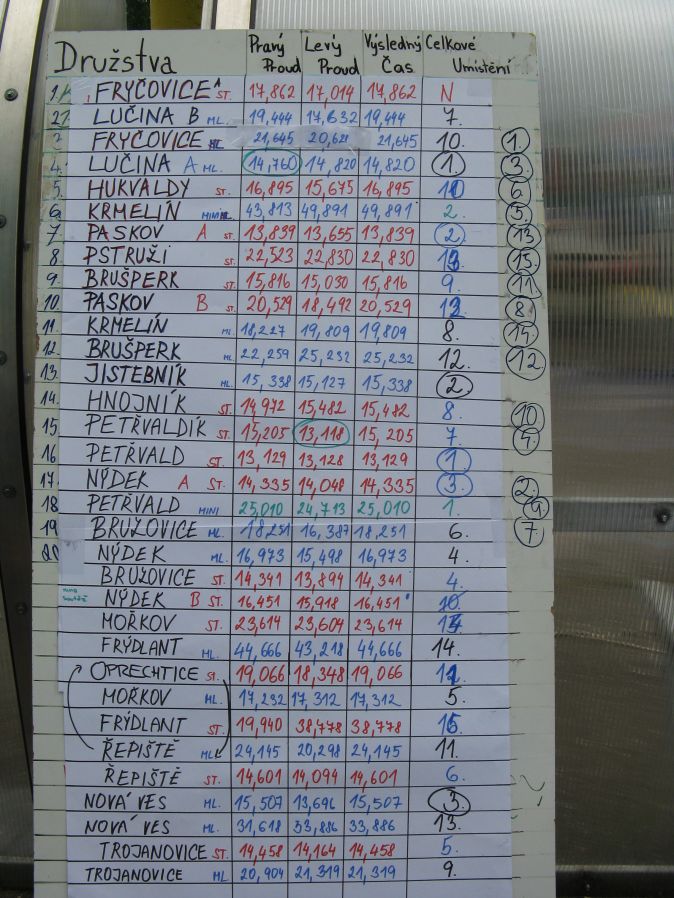 Družstva Pravý Proud Levý Proud Výsledný Čas Celkové Umístění
1. FRYČOVICE A ST. 17,862 17,014 17,862 N
2. LUČINA B ML. 19,444 17,632 19,444 7.
FRYČOVICE ML. 21,645 20,621 21,645 10. 1.
4. LUČINA A ML. 14,760 14,820 14,820 1. 3.
5. HUKVALDY ST. 16,895 15,675 16,895 6.
6. KRMELÍN MINI 43,813 49,891 49,891 2. 5.
7. PASKOV A ST. 13,839 13,655 13,839 2. 13
8. PSTRUŽI ST. 22,523 22,830 22,830 15.
9. BRUŠPERK ST. 15,816 15,030 15,816 9. 11
10. PASKOV B ST. 20,529 18,492 20,529 8.
11. KRMELÍN ML. 18,227 19,809 19,809 8. 14
12. BRUŠPERK ML. 22,259 25,232 25,232 12. 12.
13. JISTEBNÍK ML. 15,338 15,127 15,338 2.
14. HNOJNÍK ST. 14,972 15,482 15,482 8. 10
15. PETŘVALDÍK ST. 15,205 13,118 15,205 7. 4.
16 PETŘVALD ST. 13,129 13,128 13,129 1.
17. NÝDEK A ST. 14,335 14,048 14,335 3. 2.
18 PETŘVALD MINI 25,010 24,713 25,010 1. 9.
19 BRUZOVICE ML. 18,251 16,387 18,251 6. 7
20 NÝDEK ML. 16,973 15,498 16,973 4.
BRUZOVICE ST. 14,341 13,894 14,341 4.
NÝDEK B ST. 16,451 15,918 16,451 10.
MOŘKOV ST. 23,614 23,604 23,614
FRÝDLANT ML. 44,666 43,218 44,666 14.
OPRECHTICE ST. 19,066 18,348 19,066
MOŘKOV ML. 17,232 17,312 17,312 5.
FRÝDLANT ST. 19,940 38,778 38,778
ŘEPIŠTĚ ML. 24,145 20,298 24,145 11.
ŘEPIŠTĚ ST. 14,601 14,094 14,601 6.
NOVÁ VES ML. 15,507 13,696 15,507 3.
NOVÁ VES ML. 31,618 33,886 33,886 13.
TROJANOVICE ST. 14,458 14,164 14,458 5.
TROJANOVICE ML 20,904 21,319 21,319 9.